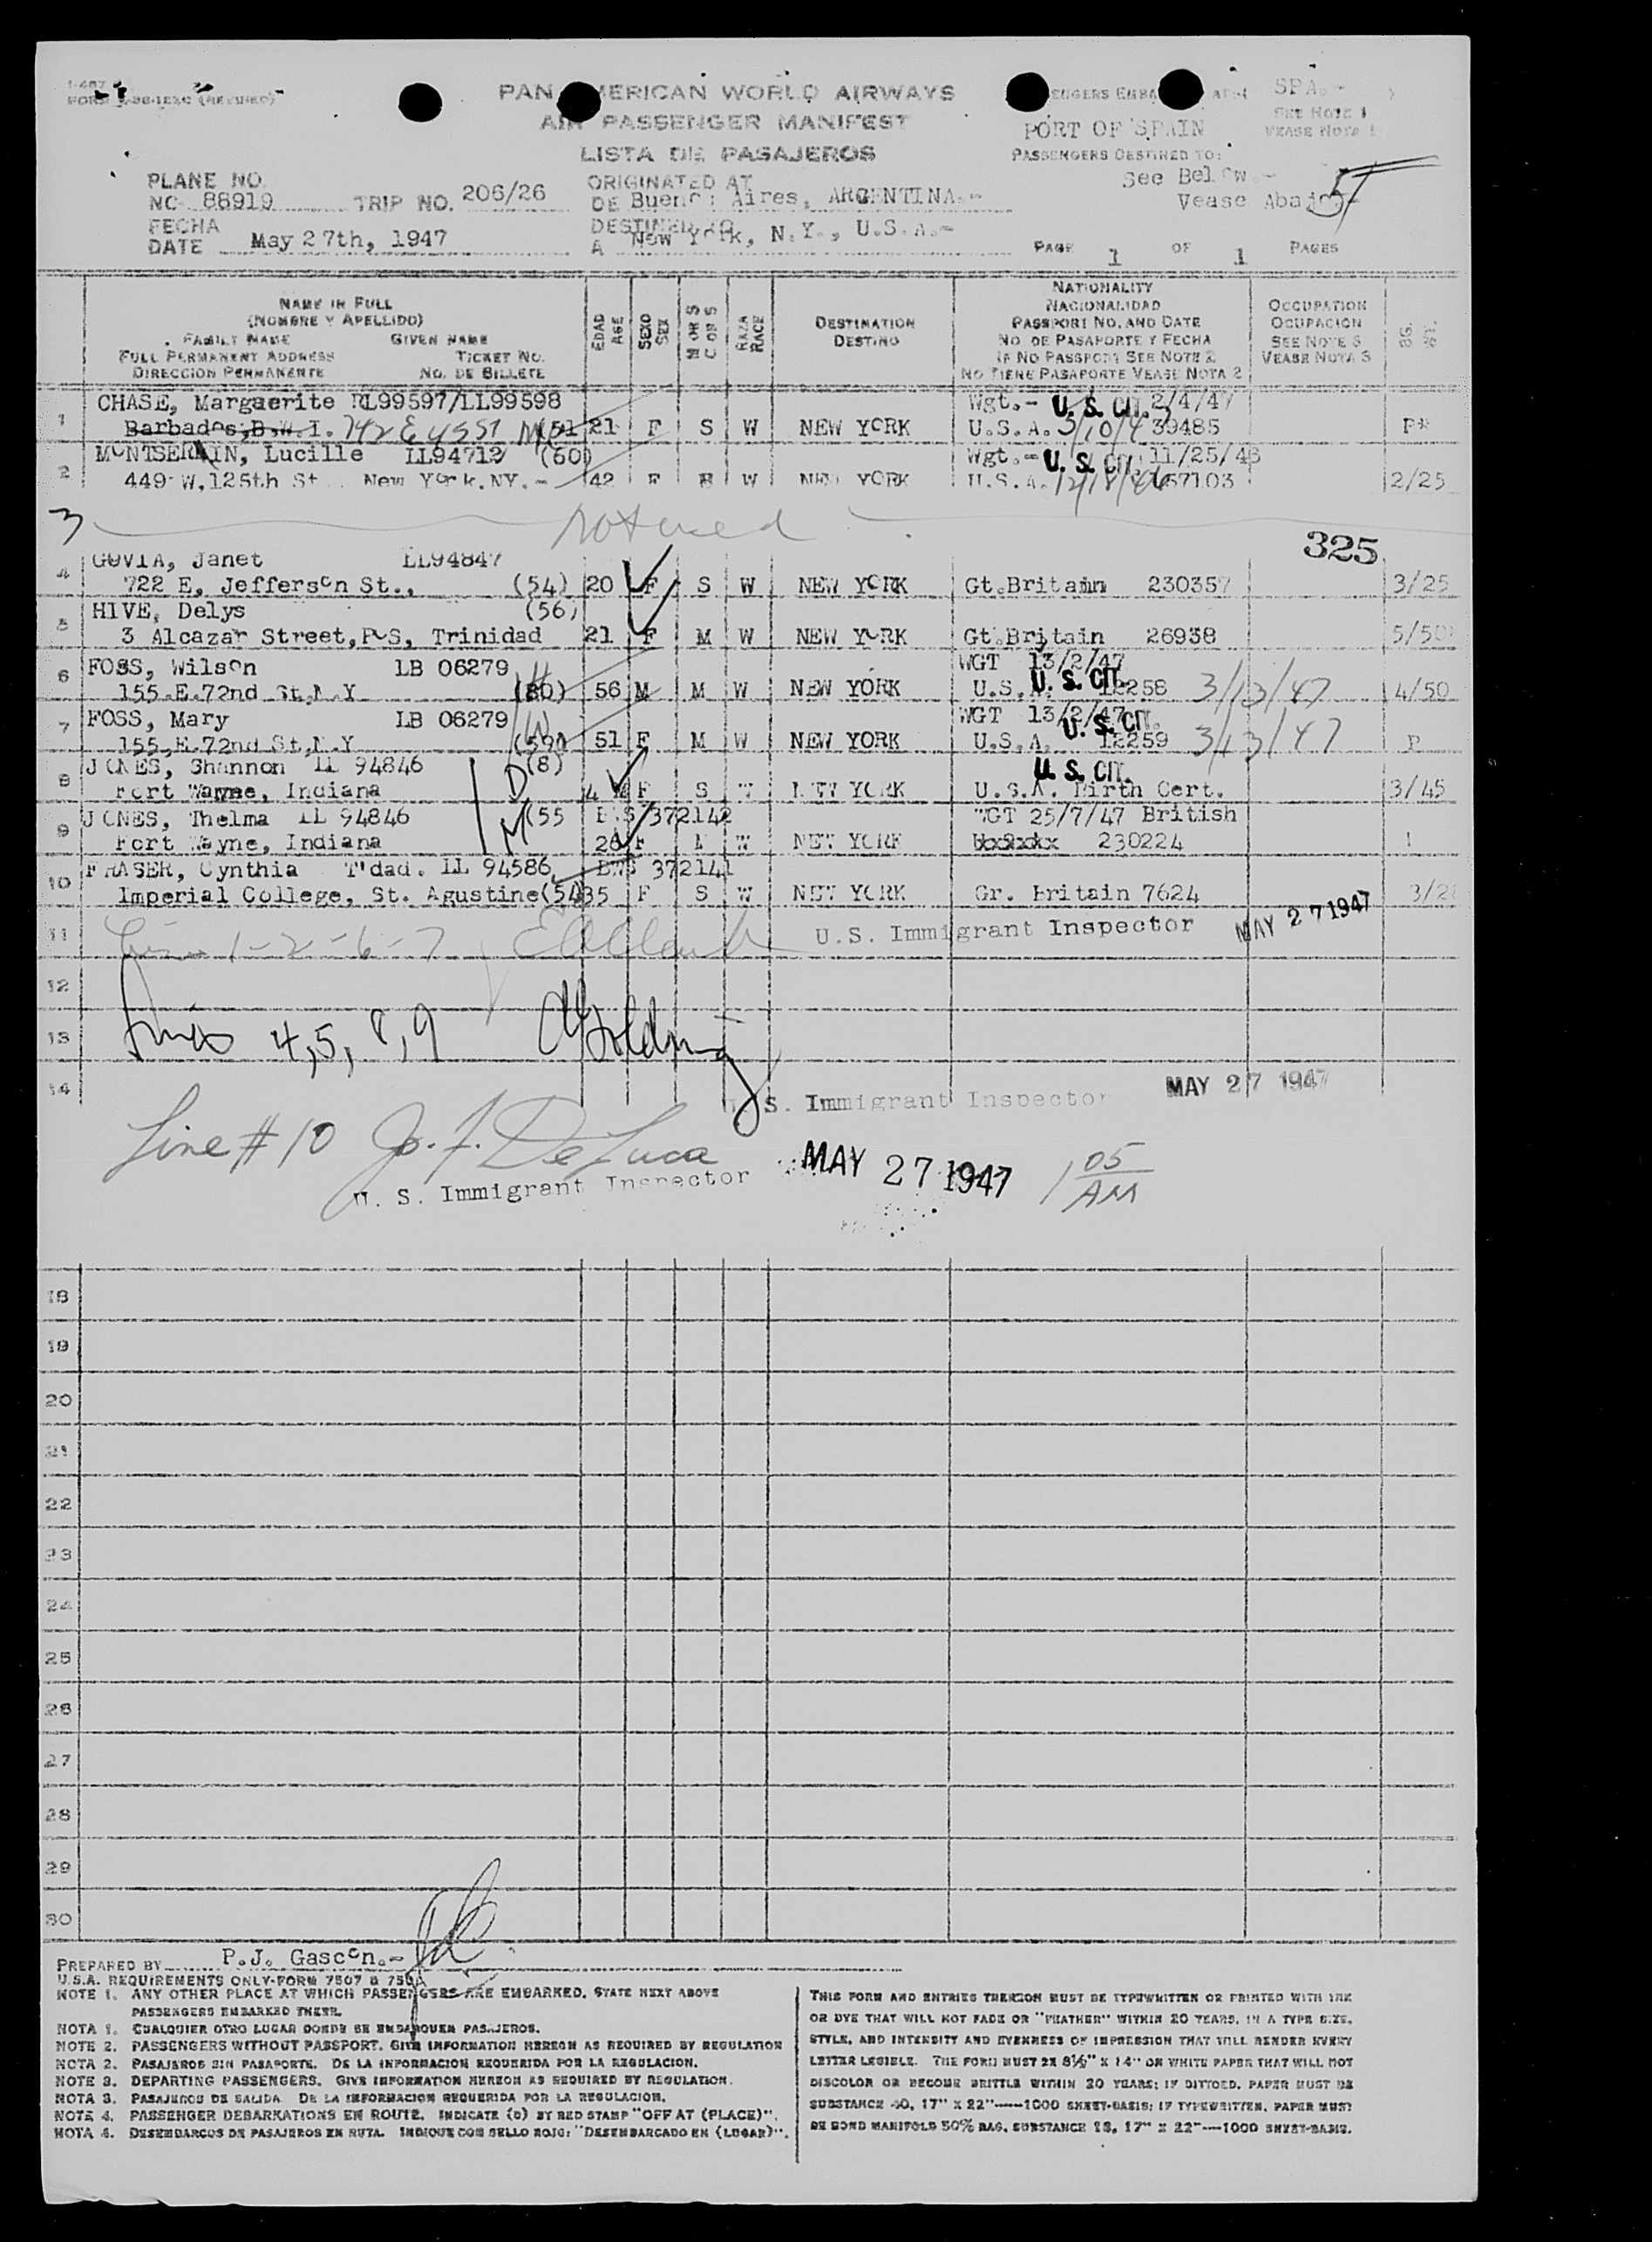 PAN AMERICAN WORLD AIRWAYS
AIR PASSENGER MANIFEST
LISTA DE PASAJEROS
PORT OF SPAIN
SEE NOTE 1
VEASE NOTA 1
PASSENGERS DESTINED TO:
See Below.-
Vease Abajo.-
PLANE NO.
NC- 88919 TRIP NO. 206/26
FECHA
DATE May 27th, 1947
ORIGINATED AT
DE Buenos Aires, ARGENTINA.-
DESTINED TO
A New York, N.Y., U.S.A.-
PAGE 1 OF 1 PAGES
NAME IN FULL
(NOMBRE Y APELLIDO)
FAMILY NAME GIVEN NAME
FULL PERMANENT ADDRESS TICKET NO.
DIRECCION PERMANENTE NO. DE BILLETE
EDAD AGE
SEXO SEX
M OR S
C OR S
RAZA RACE
DESTINATION
DESTINO
NATIONALITY
NACIONALIDAD
PASSPORT NO. AND DATE
NO DE PASAPORTE Y FECHA
IF NO PASSPORT SEE NOTE 2
NO TIENE PASAPORTE VEASE NOTA 2
OCCUPATION
OCUPACION
SEE NOTE 3
VEASE NOTA 3
1 CHASE, Marguerite LL99597/LL99598 Wgt.- U.S. CIT. 2/4/47
Barbados,B.W.I. (51 21 F S W NEW YORK U.S.A. 39485
2 MONTSERAIN, Lucille LL94712 (60) Wgt.- U.S. CIT. 11/25/46
449 W.125th St New York.NY.- 42 F W NEW YORK U.S.A. 12/18/46 67103 2/25
3 not used
325
4 GOVIA, Janet LL94847
722 E, Jefferson St., (54) 20 F S W NEW YORK Gt.Britain 230357 3/25
5 HIVE, Delys (56)
3 Alcazar Street,POS, Trinidad 21 F M W NEW YORK Gt.Britain 26938 5/50
6 FOSS, Wilson LB 06279 WGT 13/2/47
155.E.72nd St.N.Y (80) 56 M M W NEW YORK U.S.A. U.S. CIT. 12258 3/13/47 4/50
7 FOSS, Mary LB 06279 W WGT 13/2/47
155.E.72nd St.N.Y (59) 51 F M W NEW YORK U.S.A. U.S. CIT. 12259 3/13/47 P
8 JONES, Shannon LL 94846 D (8) U.S. CIT.
Fort Wayne, Indiana 4 F S W NEW YORK U.S.A. Birth Cert. 3/45
9 JONES, Thelma LL 94846 M (55 372142 WGT 25/7/47 British
Fort Wayne, Indiana 26 F M W NEW YORK 230224
10 FRASER, Cynthia T'dad. LL 94586 372141
Imperial College, St. Agustine(54 35 F S W NEW YORK Gr. Britain 7624
11 Lines 1-2-6-7 U.S. Immigrant Inspector MAY 27 1947
12
13 Lines 4,5,8,9
14 U.S. Immigrant Inspector MAY 27 1947
Line # 10 Jo. F. DeLuca
U. S. Immigrant Inspector MAY 27 1947 1 05 AM
18
19
20
21
22
23
24
25
26
27
28
29
30
PREPARED BY P.J. Gascon.-
U.S.A. REQUIREMENTS ONLY-FORM 7507 &
NOTE 1. ANY OTHER PLACE AT WHICH PASSENGERS ARE EMBARKED. STATE NEXT ABOVE
PASSENGERS EMBARKED THERE.
NOTA 1. CUALQUIER OTRO LUGAR DONDE SE EMBARQUEN PASAJEROS.
NOTE 2. PASSENGERS WITHOUT PASSPORT. GIVE INFORMATION HEREON AS REQUIRED BY REGULATION
NOTA 2. PASAJEROS SIN PASAPORTE. DE LA INFORMACION REQUERIDA POR LA REGULACION.
NOTE 3. DEPARTING PASSENGERS. GIVE INFORMATION HEREON AS REQUIRED BY REGULATION.
NOTA 3. PASAJEROS DE SALIDA DE LA INFORMACION REQUERIDA POR LA REGULACION.
NOTE 4. PASSENGER DEBARKATIONS EN ROUTE. INDICATE (D) BY RED STAMP "OFF AT (PLACE)".
NOTA 4. DESEMBARCOS DE PASAJEROS EN RUTA. INDIQUE CON SELLO ROJO: "DESEMBARCADO EN (LUGAR)".
THIS FORM AND ENTRIES THEREON MUST BE TYPEWRITTEN OR PRINTED WITH INK
OR DYE THAT WILL NOT FADE OR "FEATHER" WITHIN 20 YEARS, IN A TYPE SIZE,
STYLE, AND INTENSITY AND EVENNESS OF IMPRESSION THAT WILL RENDER EVERY
LETTER LEGIBLE. THE FORM MUST BE 8½" X 14" ON WHITE PAPER THAT WILL NOT
DISCOLOR OR BECOME BRITTLE WITHIN 20 YEARS; IF DITTOED, PAPER MUST BE
SUBSTANCE 40, 17" X 22"-----1000 SHEET-BASIS; IF TYPEWRITTEN, PAPER MUST
BE BOND MANIFOLD 50% RAG, SUBSTANCE 18, 17" X 22"---1000 SHEET-BASIS.